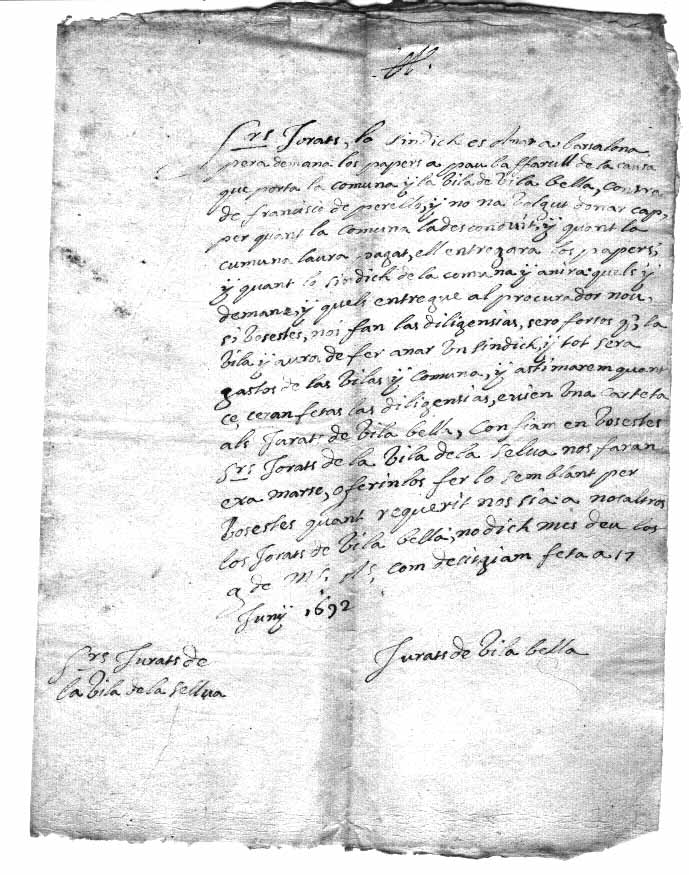 Srs Jurats, lo sindich es anat a barsalona
pera demana los papers a pau de la causa
que porta la comuna y la Vila de Vila bella, contra
de fransisco de perello, y no na volgut donar cap,
per quant la comuna la desconduit, y quant la
cumuna laura pagat, ell entregara los papers;
y quant lo sindich de la comuna y anira quels y
demane, y quels entregue al procurador nou,
si Vosestes, noi fan las diligensias, sero forsos q; la
Vila y aura de fer anar Vn sindich, y tot sera
gastos de las Vilas y Comuna, y astimarem quant
ce, ceran fetas las diligensias, envien Vna carteta
als Jurats de Vila bella, Confiam en Vosestes
Srs Jorats de la Vila de la Selua nos faran
exa marse, oferinlos fer lo semblant per
Vosestes quant requerit nos sia: a nosaltros
los Jorats de Vila bella, no dich mes deu los
g de ms as, com desitgiam feta a 17
Juny 1692
Srs Jurats de
la Vila de la Sellua
Jurats de Vila bella